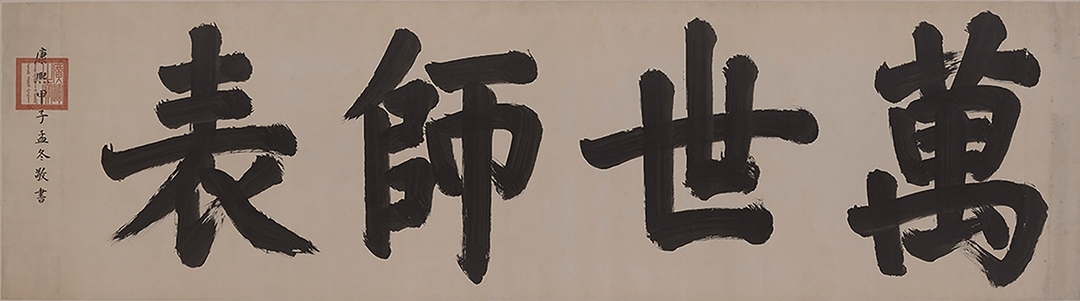 萬世師表
康熙甲子孟冬敬書